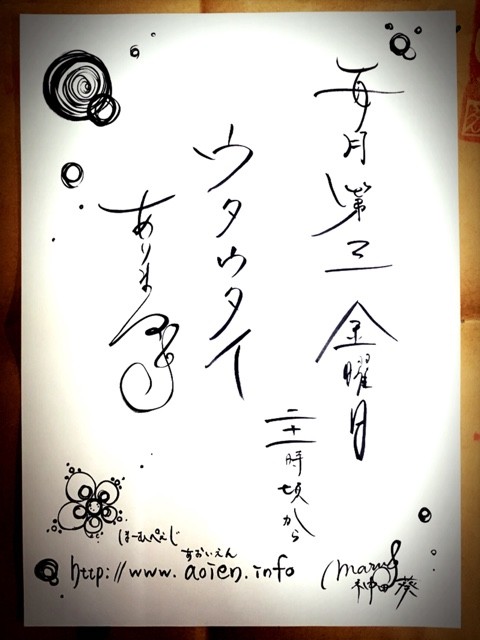 毎月第二金曜日
二十一時頃から
ウタウタイ
あります
ほーむぺぇじ
あおいえん
http://www.aoien.info
神田 葵